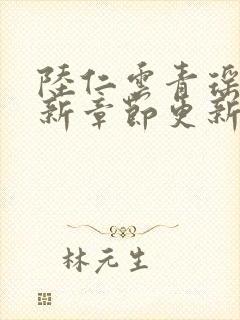 陸仁雲青瑤
新章節更新
林元生